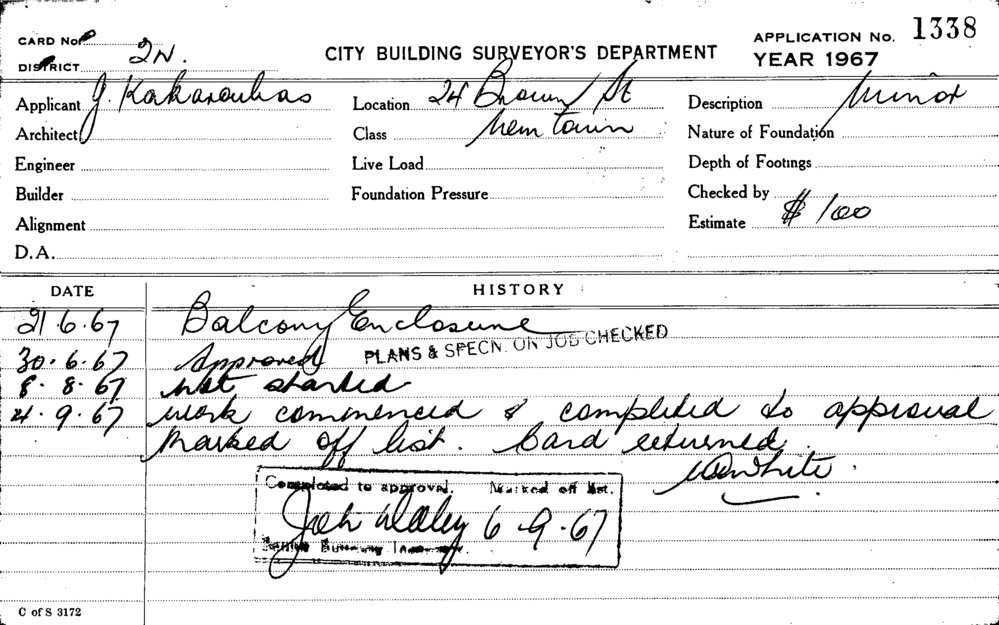 CARD No.
DISTRICT 2N.
CITY BUILDING SURVEYOR'S DEPARTMENT
APPLICATION No. 1338
YEAR 1967
Applicant J. Kakaroubas Location 24 Brown St Description Minor
Architect Class Newtown Nature of Foundation
Engineer Live Load Depth of Footings
Builder Foundation Pressure Checked by
Alignment Estimate $100
D.A.
DATE HISTORY
21.6.67 Balcony Enclosure
30.6.67 Approved PLANS & SPECN. ON JOB CHECKED
8.8.67 Not started
4.9.67 work commenced & completed to approval
Marked off list. Card returned.
White.
Completed to approval. Marked off list.
Daley 6-9-67
C of S 3172